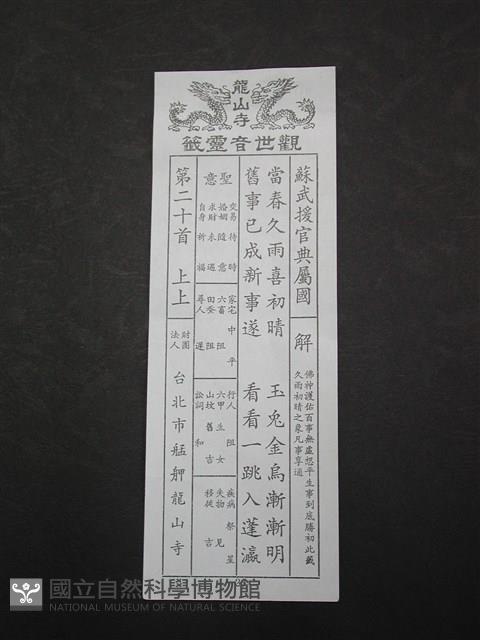 龍山寺
觀世音靈籤
蘇武援官典屬國
解
佛神護佑百事無虛想平生事到底勝初此籤
久雨初晴之象凡事享通
當春久雨喜初晴 玉兔金烏漸漸明
舊事已成新事遂 看看一跳入蓬瀛
聖意
交易待時
婚姻隨意
求財未遇
自身祈福
家宅中平
六畜阻
田委阻
尋人遲
行人阻
六甲生女
山坟舊吉
訟詞和
疾病祭星
失物見
移徙吉
第二十首 上上
財團法人
台北市艋舺龍山寺
國立自然科學博物館
NATIONAL MUSEUM OF NATURAL SCIENCE